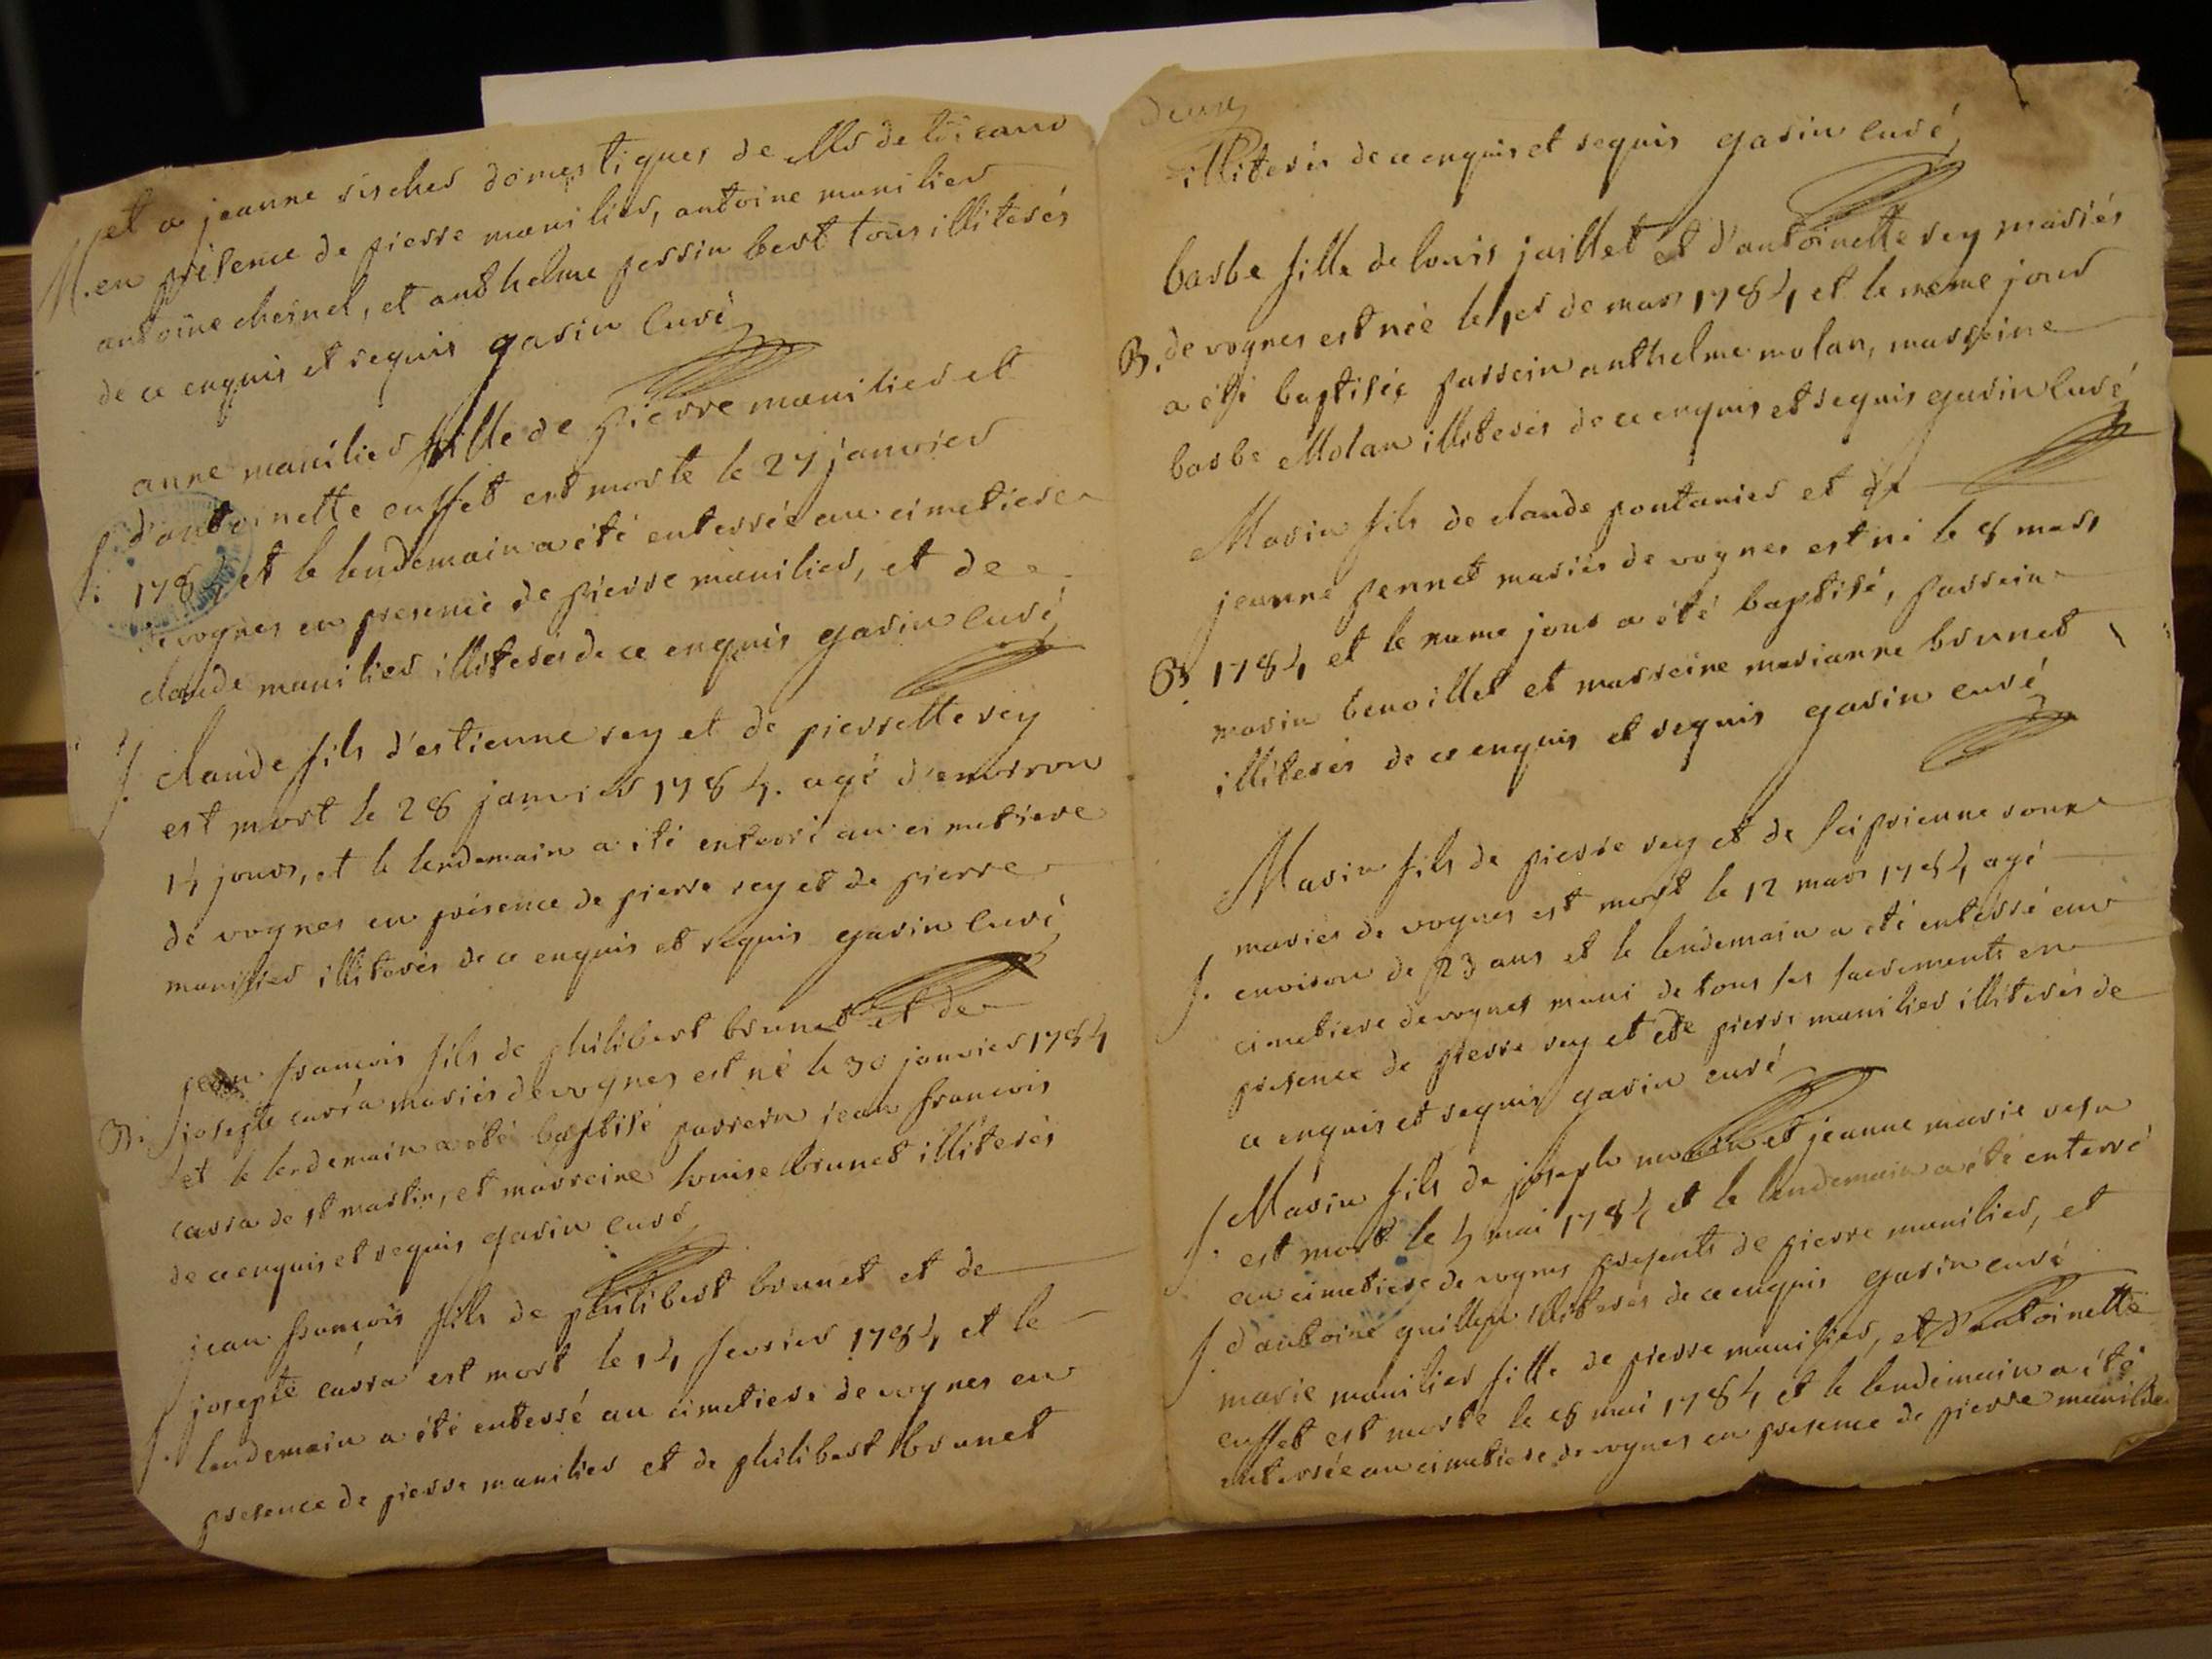 et a jeanne sischer domestiques de Mr de
M. en présence de pierre manilier, antoine manilier
antoine chesnel, et anthelme perrin bert tous illiterés
de ce enquis et requis garin curé
anne manilier fille de pierre manilier et
d'antoinette cuffet est morte le 27 janvier
1784 et le lendemain a été enterrée au cimetiere
S. de vognes en presence de pierre manilier, et de
claude manilier illiterés de ce enquis garin curé
S. claude fils d'estienne rey et de pierrette rey
est mort le 28 janvier 1784. agé d'environ
14 jours, et le lendemain a été enterré au cimetiere
de vognes en présence de pierre rey et de pierre
manilier illiterés de ce enquis et requis garin curé
jean francois fils de philibert brunet et de
B. josepte carra mariés de vognes est né le 30 janvier 1784
et le lendemain a été baptisé parrein jean francois
carra de st martin, et marreine louise brunet illiterés
de ce enquis et requis garin curé
jean françois fils de philibert brunet et de
josepte carra est mort le 14 fevrier 1784 et le
S. lendemain a été enterré au cimetiere de vognes en
presence de pierre manilier et de philibert brunet
deux
illiterés de ce enquis et requis garin curé
barbe fille de louis jaillet et d'antoinette rey mariés
B. de vognes est née le 1er de mars 1784 et le meme jour
a été baptisée parrein anthelme molan, marreine
barbe Molan illiterés de ce enquis et requis garin curé
Marin fils de claude pontanier et de
jeanne pennet mariés de vognes est né le 8 mars
B. 1784 et le meme jour a été baptisé, parrein
marin benoillet et marreine marianne brunet
illiterés de ce enquis et requis garin curé
Marin fils de pierre rey et de sciprienne roux
mariés de vognes est mort le 12 mars 1784 agé
S. environ de 23 ans et le lendemain a été enterré au
cimetiere de vognes muni de tous ses sacrements en
presence de pierre rey et de pierre manilier illiterés de
ce enquis et requis garin curé
S. Marin fils de joseph et jeanne marie
est mort le 4 mai 1784 et le lendemain a été enterré
au cimetiere de vognes presents de pierre manilier, et
d'antoine illiterés de ce enquis garin curé
S. marie manilier fille de pierre manilier, et d'antoinette
cuffet est morte le 8 mai 1784 et le lendemain a été
enterrée au cimetiere de vognes en presence de pierre manilier